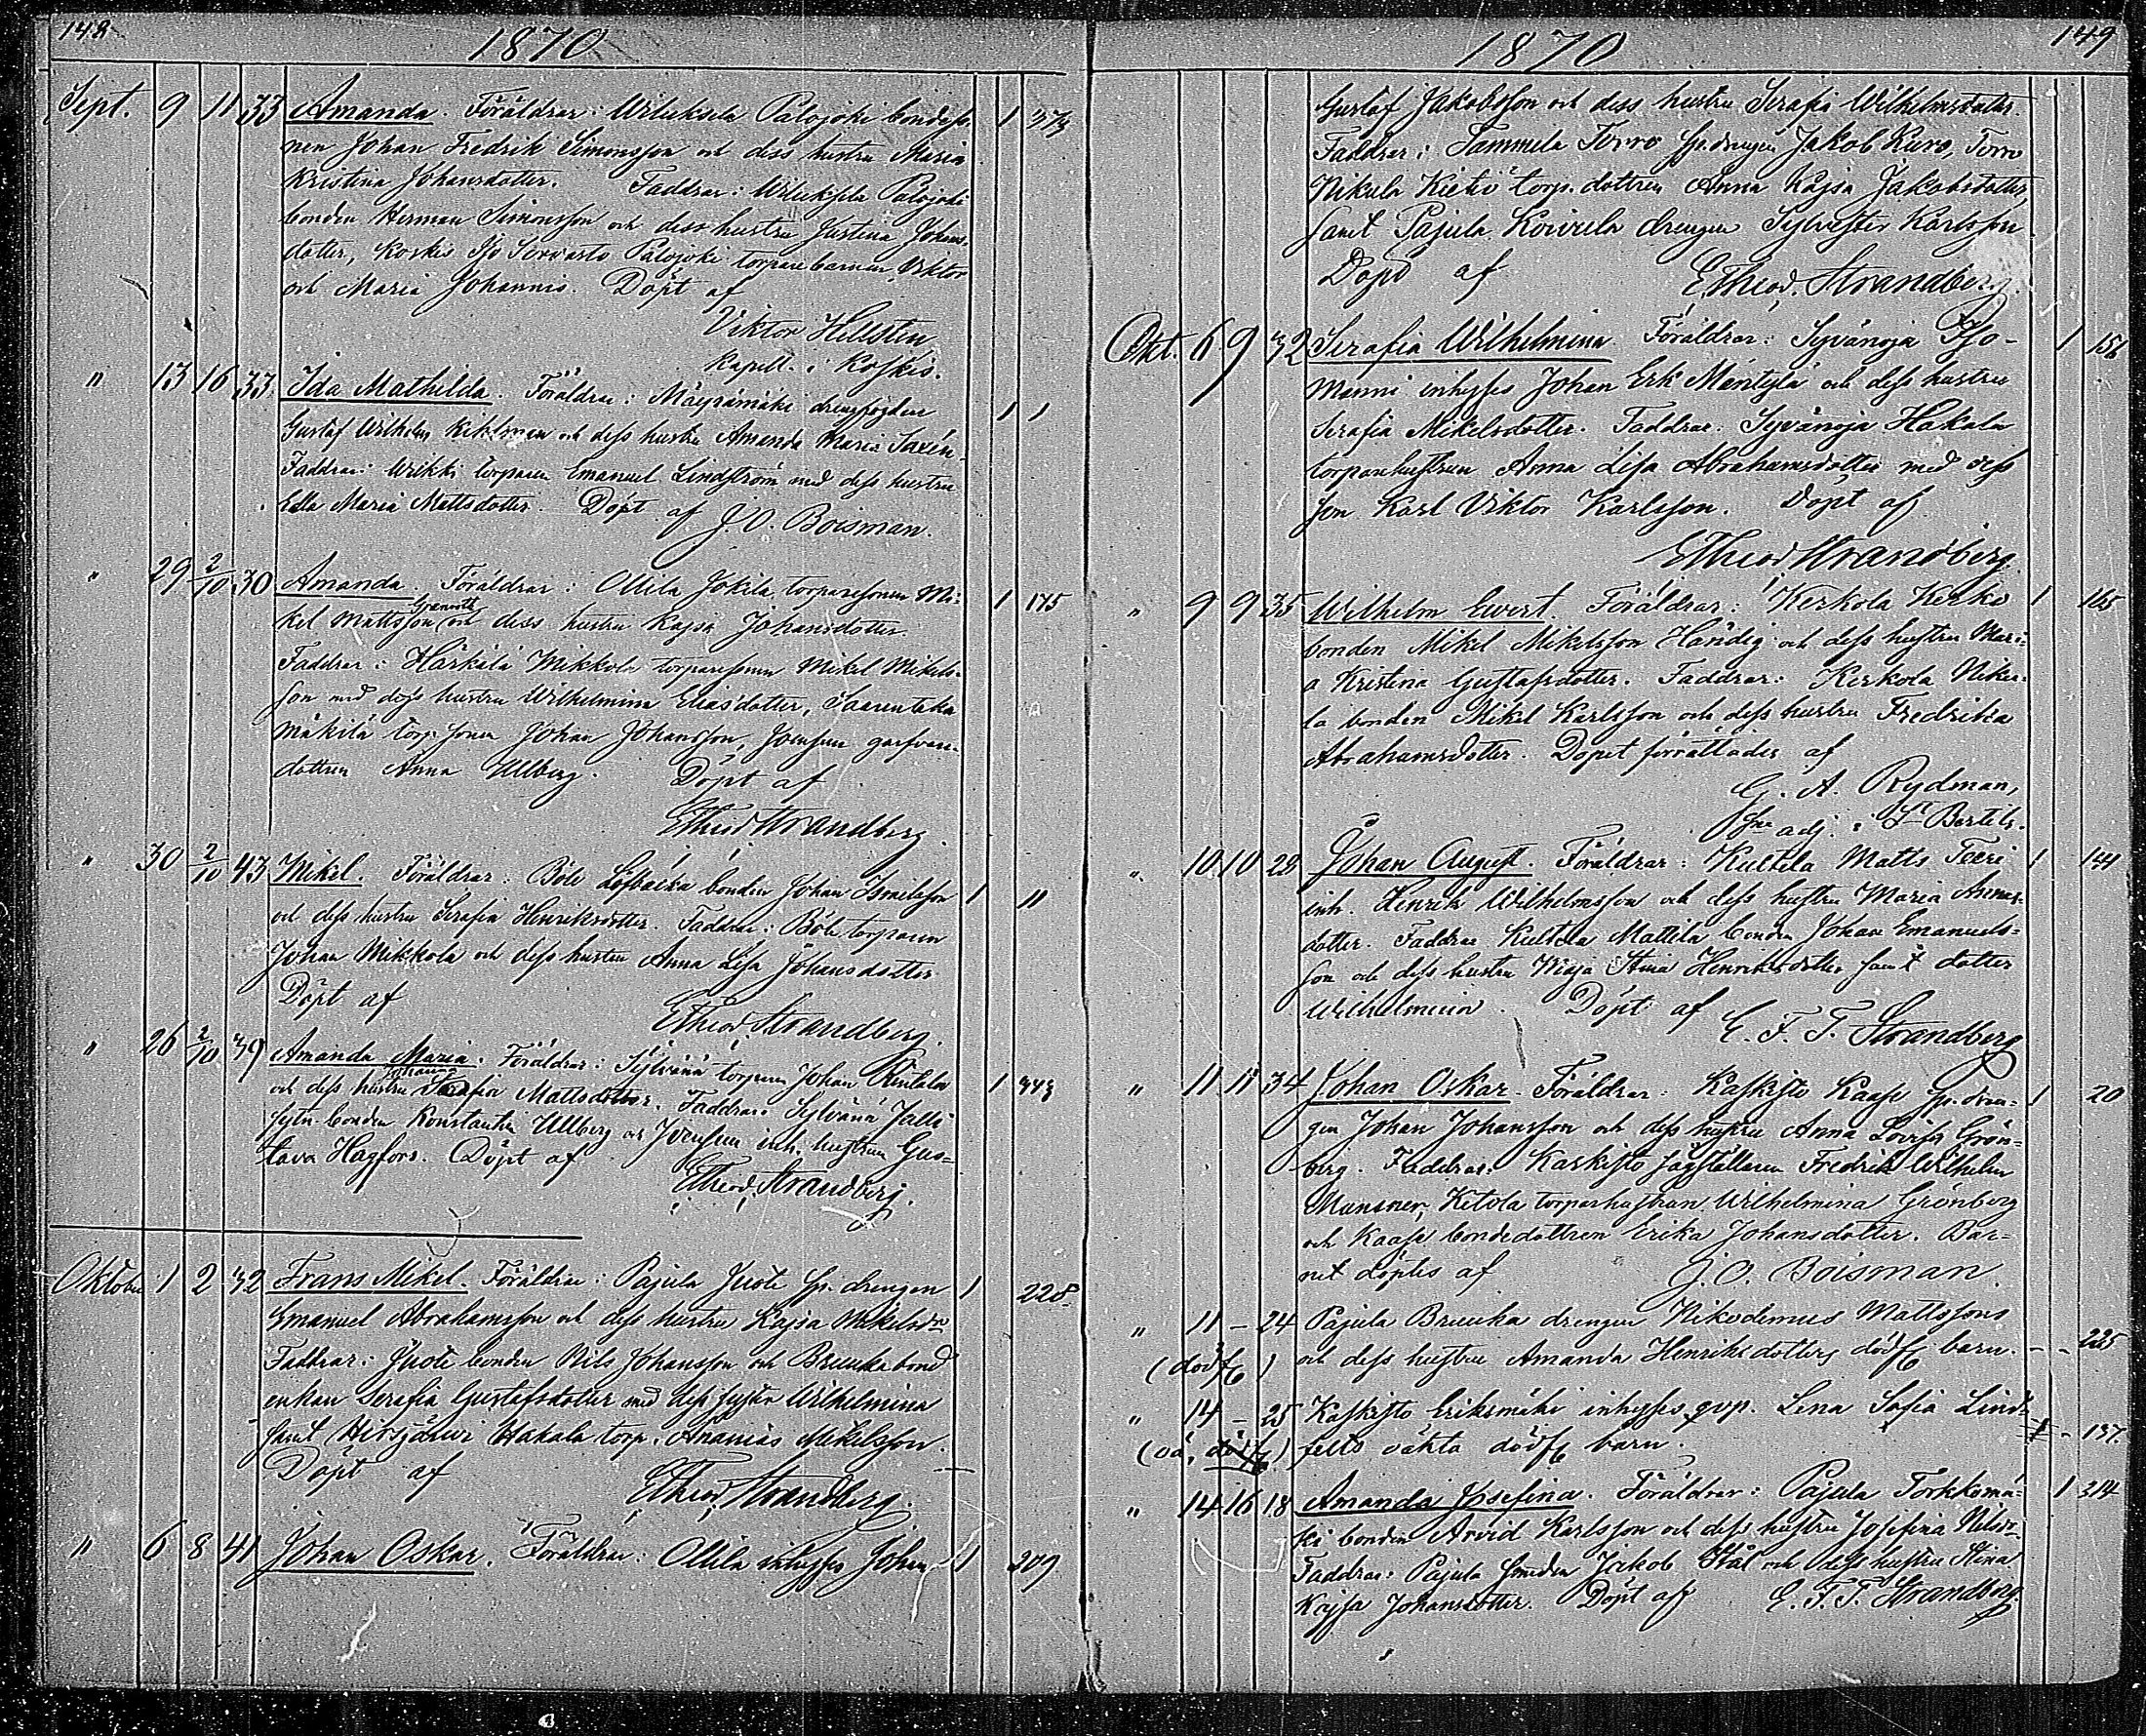 148
1870
Sept. 9 11 33 Amanda. Föräldrar: Wiluksela Palojoki bondesso-
nen Johan Fredrik Simonsson och dess hustru Maria 1 373
Kristina Johansdotter. Faddrar: Wiluksela Palojoki
bonden Herman Simonsson och dess hustru Justina Johans-
dotter, Koskis Iso Sorvasto Palojoki torparebarnen Viktor
och Maria Johannis. Döpt af
Viktor Hellsten
kapell. i Koskis.
" 13 16 33 Ida Mathilda. Föräldrar: Mäyrämäki drengfogden 1 1
Gustaf Wilhelm Kihlman och dess hustru Amanda Maria Saxén.
Faddrar: Wrikki torparen Emanuel Lindström med dess hustru
Edla Maria Mattsdotter. Döpt af J. O. Boisman.
" 29 2/10 30 Amanda. Föräldrar: Ollila Jokila torparesonen Mi- 1 175
kel Mattsson Granroth och dess hustru Kajsa Johansdotter.
Faddrar: Härkälä Mikkola torparesonen Mikel Mikels-
son med dess hustru Wilhelmina Eliasdotter, Saarentaka
Mäkilä torp. sonen Johan Johansson, Joensuu garfvare-
dottren Anna Ullberg. Döpt af
E Theod Strandberg
" 30 2/10 43 Mikel. Föräldrar: Böle Löfbacka bonden Johan Ismilsson 1 11
och dess hustru Serafia Henriksdotter. Faddrar: Böle torparen
Johan Mikkola och dess hustru Anna Lisa Johansdotter
Döpt af
E Theod. Strandberg.
" 26 2/10 39 Amanda Maria. Föräldrar: Sylvänä torparen Johan Rintala 1 343
och dess hustru Johanna Serafia Mattsdotter. Faddrar: Sylvänä Jalli
sytn. bonden Konstantin Ullberg och Joensuu inh. hustrun Gus-
tava Hagfors. Döpt af
E Theod. Strandberg.
Oktober 1 2 32 Frans Mikel. Föräldrar: Pajula Juote sp. drengen 1 228
Emanuel Abrahamsson och dess hustru Kajsa Mikelsdr
Faddrar: Juote bonden Nils Johansson och Bruuka bond
enkan Serafia Gustafsdotter med dess syster Wilhelmina
samt Hirsjärvi Hakala torp. Ananias Mikelsson.
Döpt af
E Theod. Strandberg.
" 6 8 41 Johan Oskar. Föräldrar: Ollila inhyses Johan 1 209
149
1870
Gustaf Jakobsson och dess hustru Serafia Wilhelmsdotter.
Faddrar: Tammela Torro sp. drengen Jakob Kuro, Torro
Nikula Kietiö torp. dottren Anna Kajsa Jakobsdotter,
samt Pajula Koivula drengen Sylvester Karlsson
Döpt af E. Theod. Strandberg.
Okt. 6 9 32 Serafia Wilhelmina. Föräldrar: Syvänoja Iso- 1 156
Manni inhyses Johan Erk Mäntylä och dess hustru
Serafia Mikelsdotter. Faddrar: Syvänoja Hakala
torparehustrun Anna Lisa Abrahamsdotter med dess
son Karl Viktor Karlsson. Döpt af
E Theod Strandberg.
" 9 9 35 Wilhelm Ewert. Föräldrar: Kerkola Kerko 1 165
bonden Mikel Mikelsson Händig och dess hustru Mari-
a Kristina Gustafsdotter. Faddrar: Kerkola Niku-
la bonden Mikel Karlsson och dess hustru Fredrika
Abrahamsdotter. Dopet förrättades af
G. A. Rydman,
sne adj. i St Bertils.
" 10 10 28 Johan August. Föräldrar: Kultela Matts Teeri 1 141
inh. Henrik Wilhelmsson och dess hustru Maria Annas-
dotter. Faddrar Kultela Mattila bonden Johan Emanuels-
son och dess hustru Maja Stina Henriksdotter samt dotter
Wilhelmina. Döpt af
E. F. T. Strandberg
" 11 11 34 Johan Oskar. Föräldrar: Kaskisto Kaase sp. dren- 1 20
gen Johan Johansson och dess hustru Anna Lovisa Grön-
berg. Faddrar: Kaskisto sågställaren Fredrik Wilhelm
Mansner, Ketola torparhustrun Wilhelmina Grönberg
och Kaase bondedottren Erika Johansdotter. Bar-
net döptes af J. O. Boisman.
" 11 – 24 Pajula Bruuka drengen Nikodemus Mattssons
(dödf.) och dess hustru Amanda Henriksdotters dödf. barn. – – 225
" 14 – 25 Kaskisto Eriksmäki inhyses qvp. Lena Sofia Lind-
(oä. dödf.) felts oäkta dödf. barn. 1 – 137.
" 14 16 18 Amanda Josefina. Föräldrar: Pajula Torkkomä- 1 314
ki bonden Arvid Karlsson och dess hustru Josefina Nilsdr
Faddrar: Pajula smeden Jakob Stål och dess hustru Stina
Kajsa Johansdotter. Döpt af E. F. T. Strandberg.